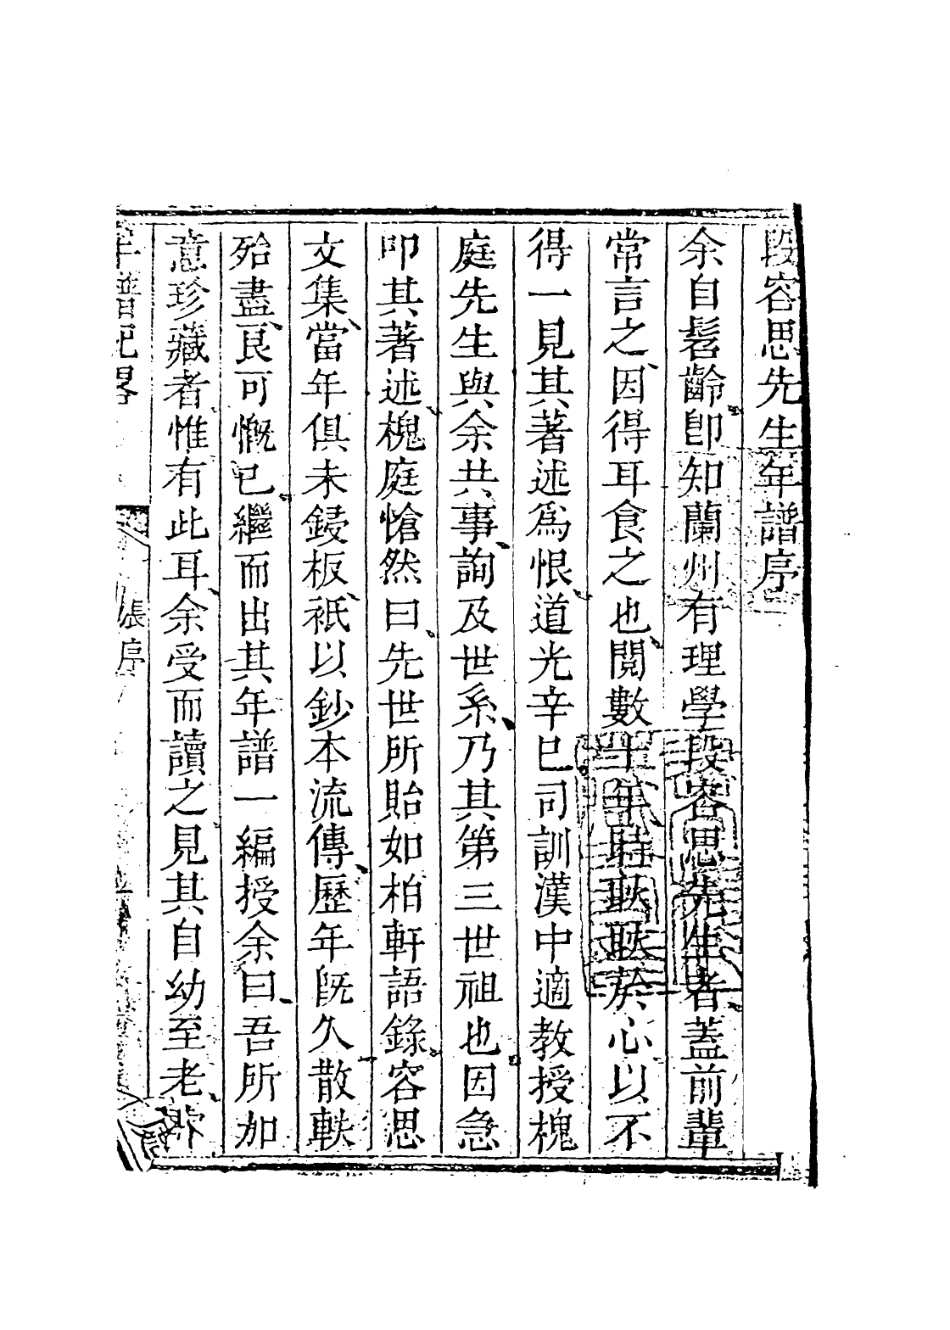 段容思先生年譜序
余自髫齡卽知蘭州有理學段容思先生者蓋前輩
常言之因得耳食之也閱數十年時耿耿於心以不
得一見其著述爲恨道光辛巳司訓漢中適教授槐
庭先生與余共事詢及世系乃其第三世祖也因急
叩其著述槐庭愴然曰先世所貽如柏軒語錄容思
文集當年俱未鋟板衹以鈔本流傳歷年旣久散軼
殆盡良可慨已繼而出其年譜一編授余曰吾所加
意珍藏者惟有此耳余受而讀之見其自幼至老
年譜紀畧
張序